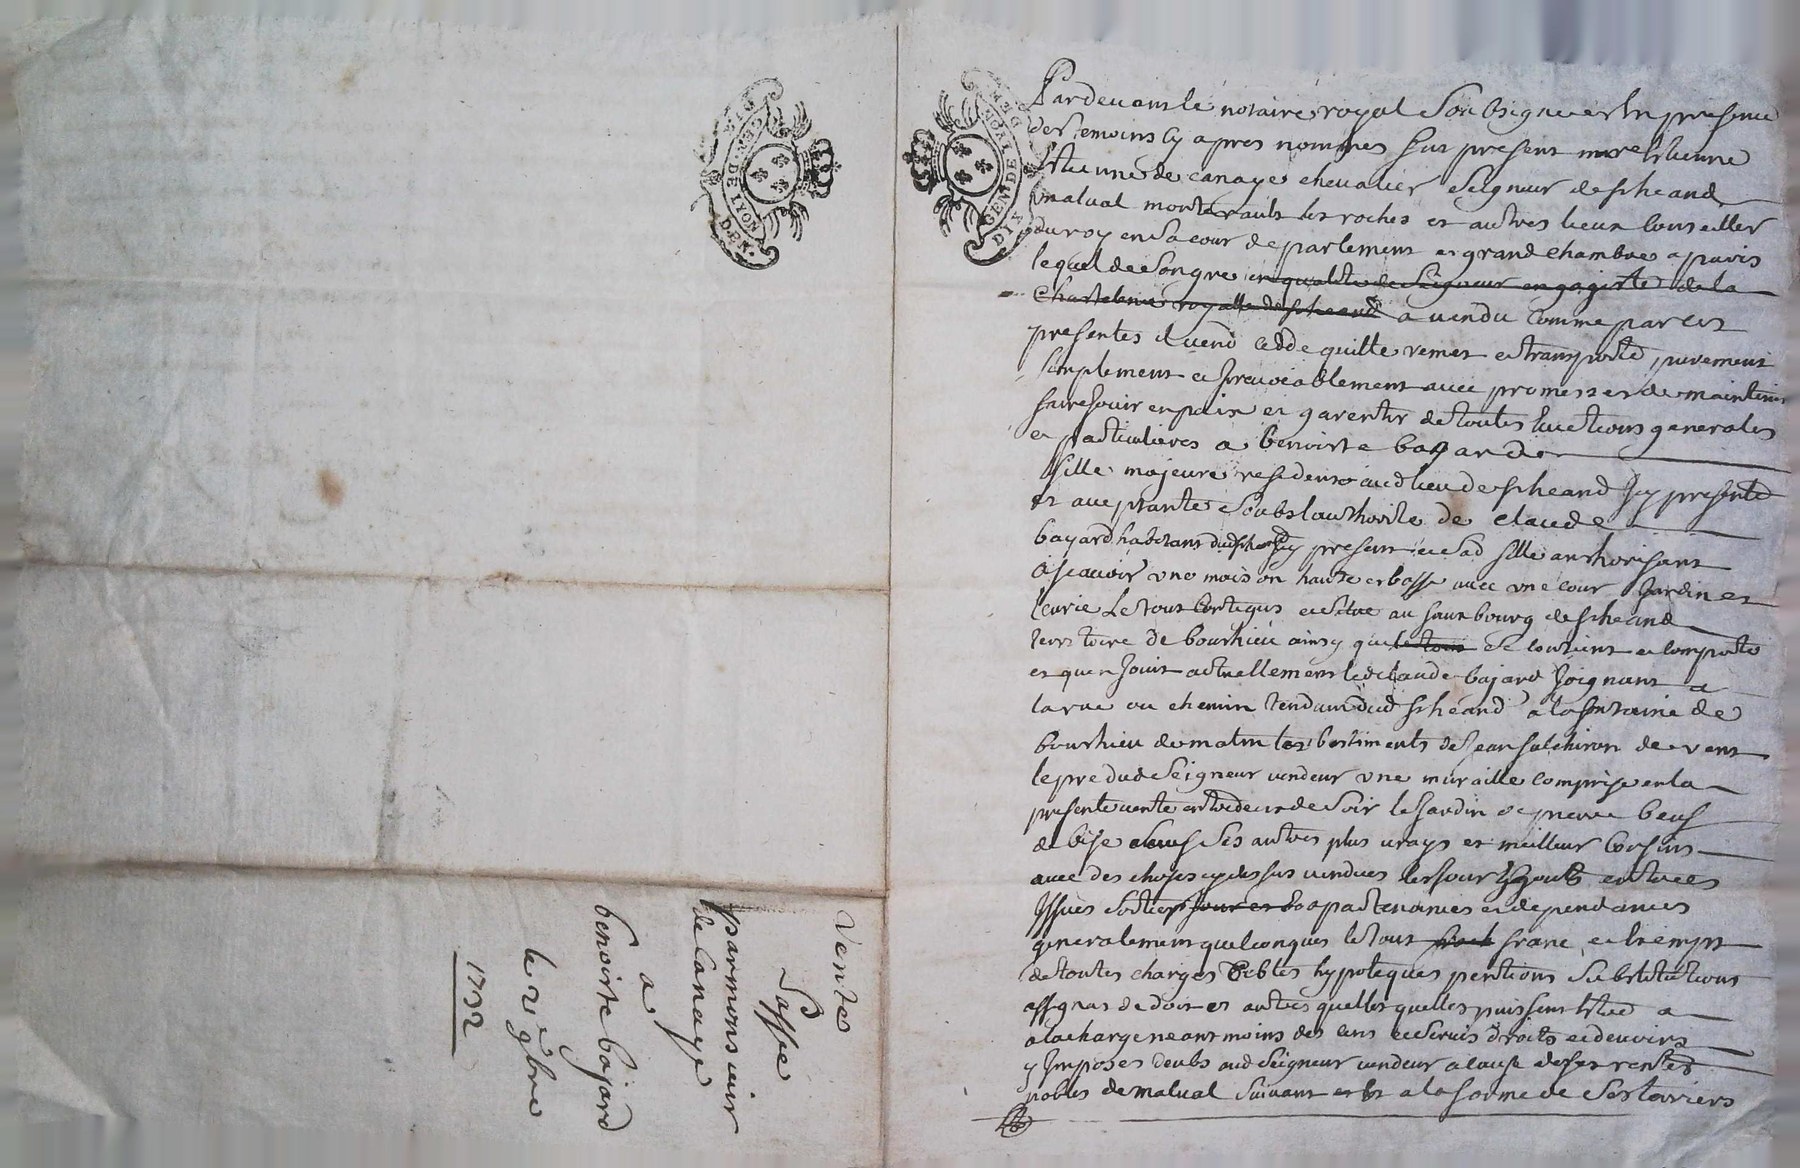 GEN. DE LYON
D.P.K.
GEN. DE LYON
Vente
passee
par monsieur
de Canaye
a
benoiste bajard
le 21e 9bre
1732
Pardevant le notaire royal Soubsigné et En presence
des temoins Cy apres nommés fut present mre Estienne
de canaye chevalier Seigneur de
malval les roches et autres lieux Conseiller
du roy en Sa cour de parlement et grand chambre a paris
lequel de Son gre en qualite de Seigneur engagiste de la
royalle a vendu Comme par ces
presentes il vend cedde quitte remet et transporte purement
simplement et Jrrevocablement avec promesses de maintenir
faire Jouir en paix et garentir de toutes evictions generales
et particulieres a benoiste bajard
fille majeure residente aud lieu de Jcy presente
et acceptante Soubs lauthorite de claude
bayard habitant present et Sad fille authorisant
a scavoir une maison haute et basse avec une cour Jardin et
Ecurie Le tout Contigus et Situé au faux bourg de
territoire de bourhieu ainsy que le tout Se contient et comporte
et quen Jouit actuellement led claude bajard Joignant a
la rue ou chemin tendant dud a la fontaine de
bourhieu de matin les bastiments de Jean de vent
le pre dud Seigneur vendeur une muraille comprise en la
presente vente entredeux de Soir le Jardin de pierre
de bise Sauf Ses autres plus vrays et meilleurs Confins
avec des choses cy dessus vendues entrees
Jssues Sorties apartenances et dependances
generalement quelconques le tout franc et Exempt
de toutes charges debtes hypoteques pentions Substitutions
assignas de dots et autres quelles quelles puissent Etre
a la charge neantmoins des cens et Servis droits et devoirs
y Jmposes deubs aud Seigneur vendeur a cause de Ses rentes
nobles de malval Suivant et a la forme de Ses terriers